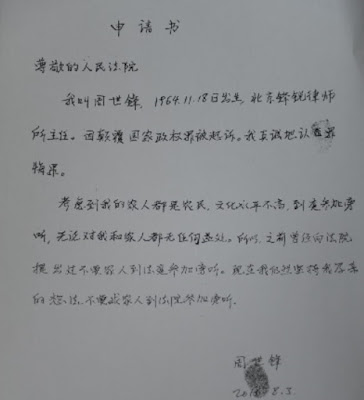 申请书
尊敬的人民法院
我叫周世锋,1964.11.18日出生,北京锋锐律师
所主任。因颠覆国家政权罪被起诉。我真诚地认罪
悔罪。
考虑到我的家人都是农民,文化水平不高,到庭参加旁
听,无论对我和家人都无任何益处。所以,之前曾经向法院
提出过不要家人到法庭参加旁听。现在我仍然坚持我原来
的想法,不要我家人到法院参加旁听。
周世锋
8.3.